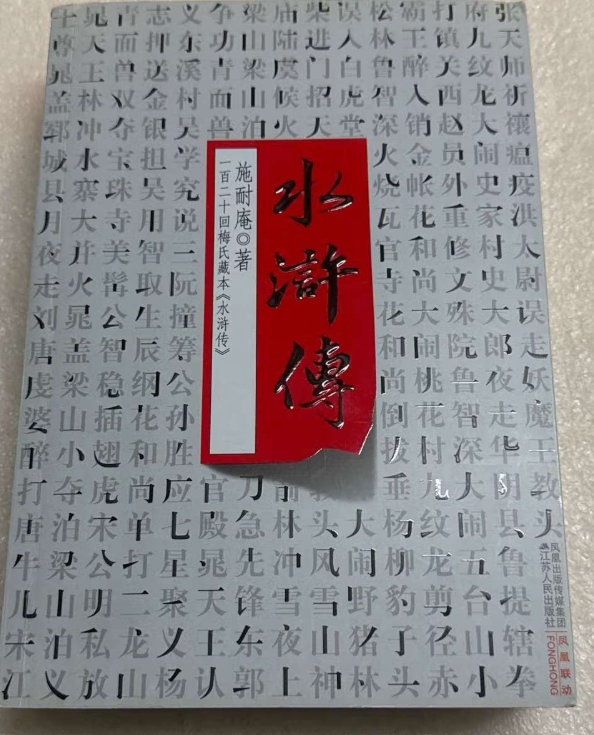 张天师祈禳瘟疫洪太尉误走妖魔王教头
府九纹龙大闹史家村史大郎夜走华阴县鲁提辖拳
打镇关西赵员外重修文殊院鲁智深大闹五台山小
霸王醉入销金帐花和尚大闹桃花村九纹龙剪径赤
松林鲁智深火烧瓦官寺花和尚倒拔垂杨柳豹子头
误入白虎堂
大闹野猪林
柴进门招天
头风雪山神
庙陆虞候火
林冲雪夜上
梁山梁山泊
刀急先锋东郭
争功青面兽
官殿晁天王认
义东溪村吴学究说三阮撞筹公孙胜应七星聚义杨
志押送金银担吴用智取生辰纲花和尚单打二龙山
青面兽双夺宝珠寺美髯公智稳插翅虎宋公明私放
晁天王林冲水寨大并火晁盖梁山小夺泊梁山泊义
士尊晁盖郓城县月夜走刘唐虔婆醉打唐牛儿宋江
水浒傳
施耐庵◎著
一百二十回梅氏藏本《水浒传》
凤凰出版传媒集团
江苏人民出版社
凤凰联动
FONGHONG